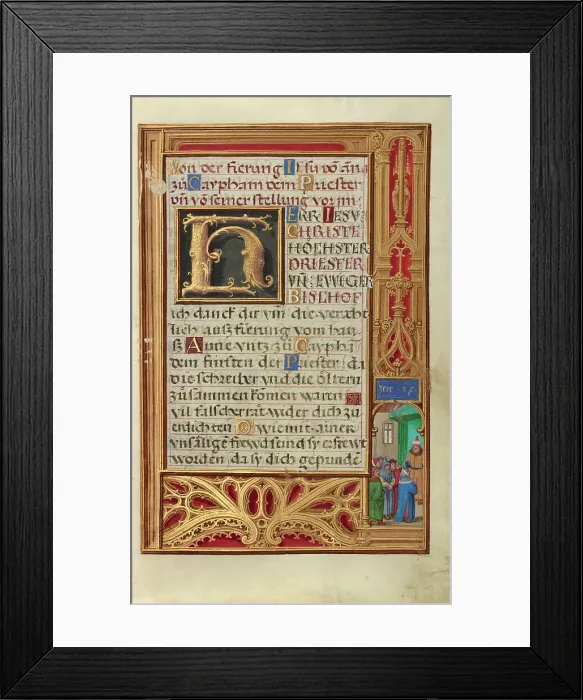 Von der fierung Jesu võ ãna
zů Caypham dem Priester
vñ võ seiner stellung vor im
HERR IESV
CHRISTE
HÖCHSTER
PRIESTER
VÑ: EWIGER
BISCHOF
ich danck dir vm̃ die veracht
lich auß fierung vom hau
ß Anne vntz zů Caypha
dem fürsten der Priester, da
die schreiber vnd die öltern
zůsammen komen waren
vil falscher rät wider dich zu
wie mit ainer
vnsälige frewd seind sy erfrewt
worden da sy dich gepundẽ